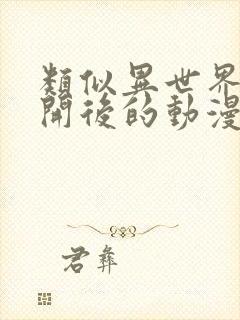 類似異世界
開後的動漫
君彝